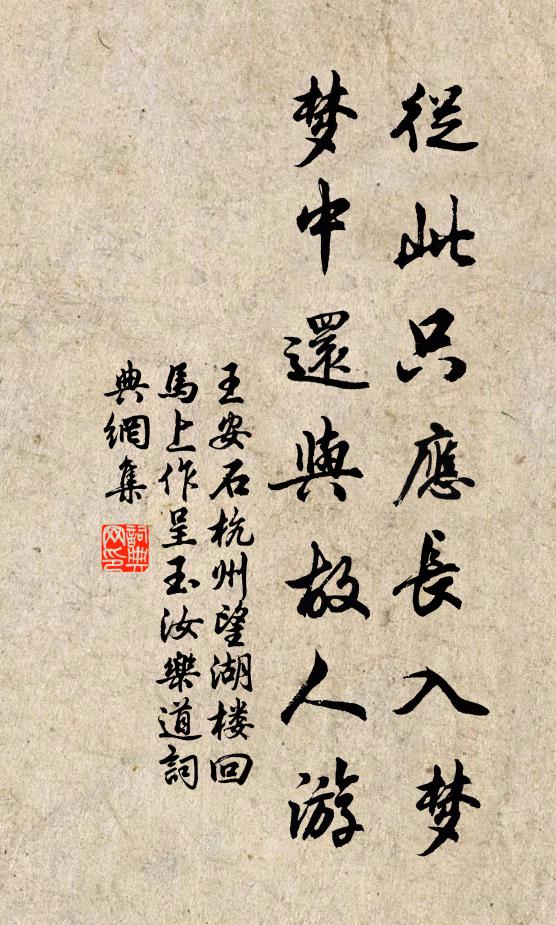 從此只應長入梦
梦中還與故人游
王安石杭州望湖楼回
馬上作呈玉汝樂道詞
典網集
詞典
网印